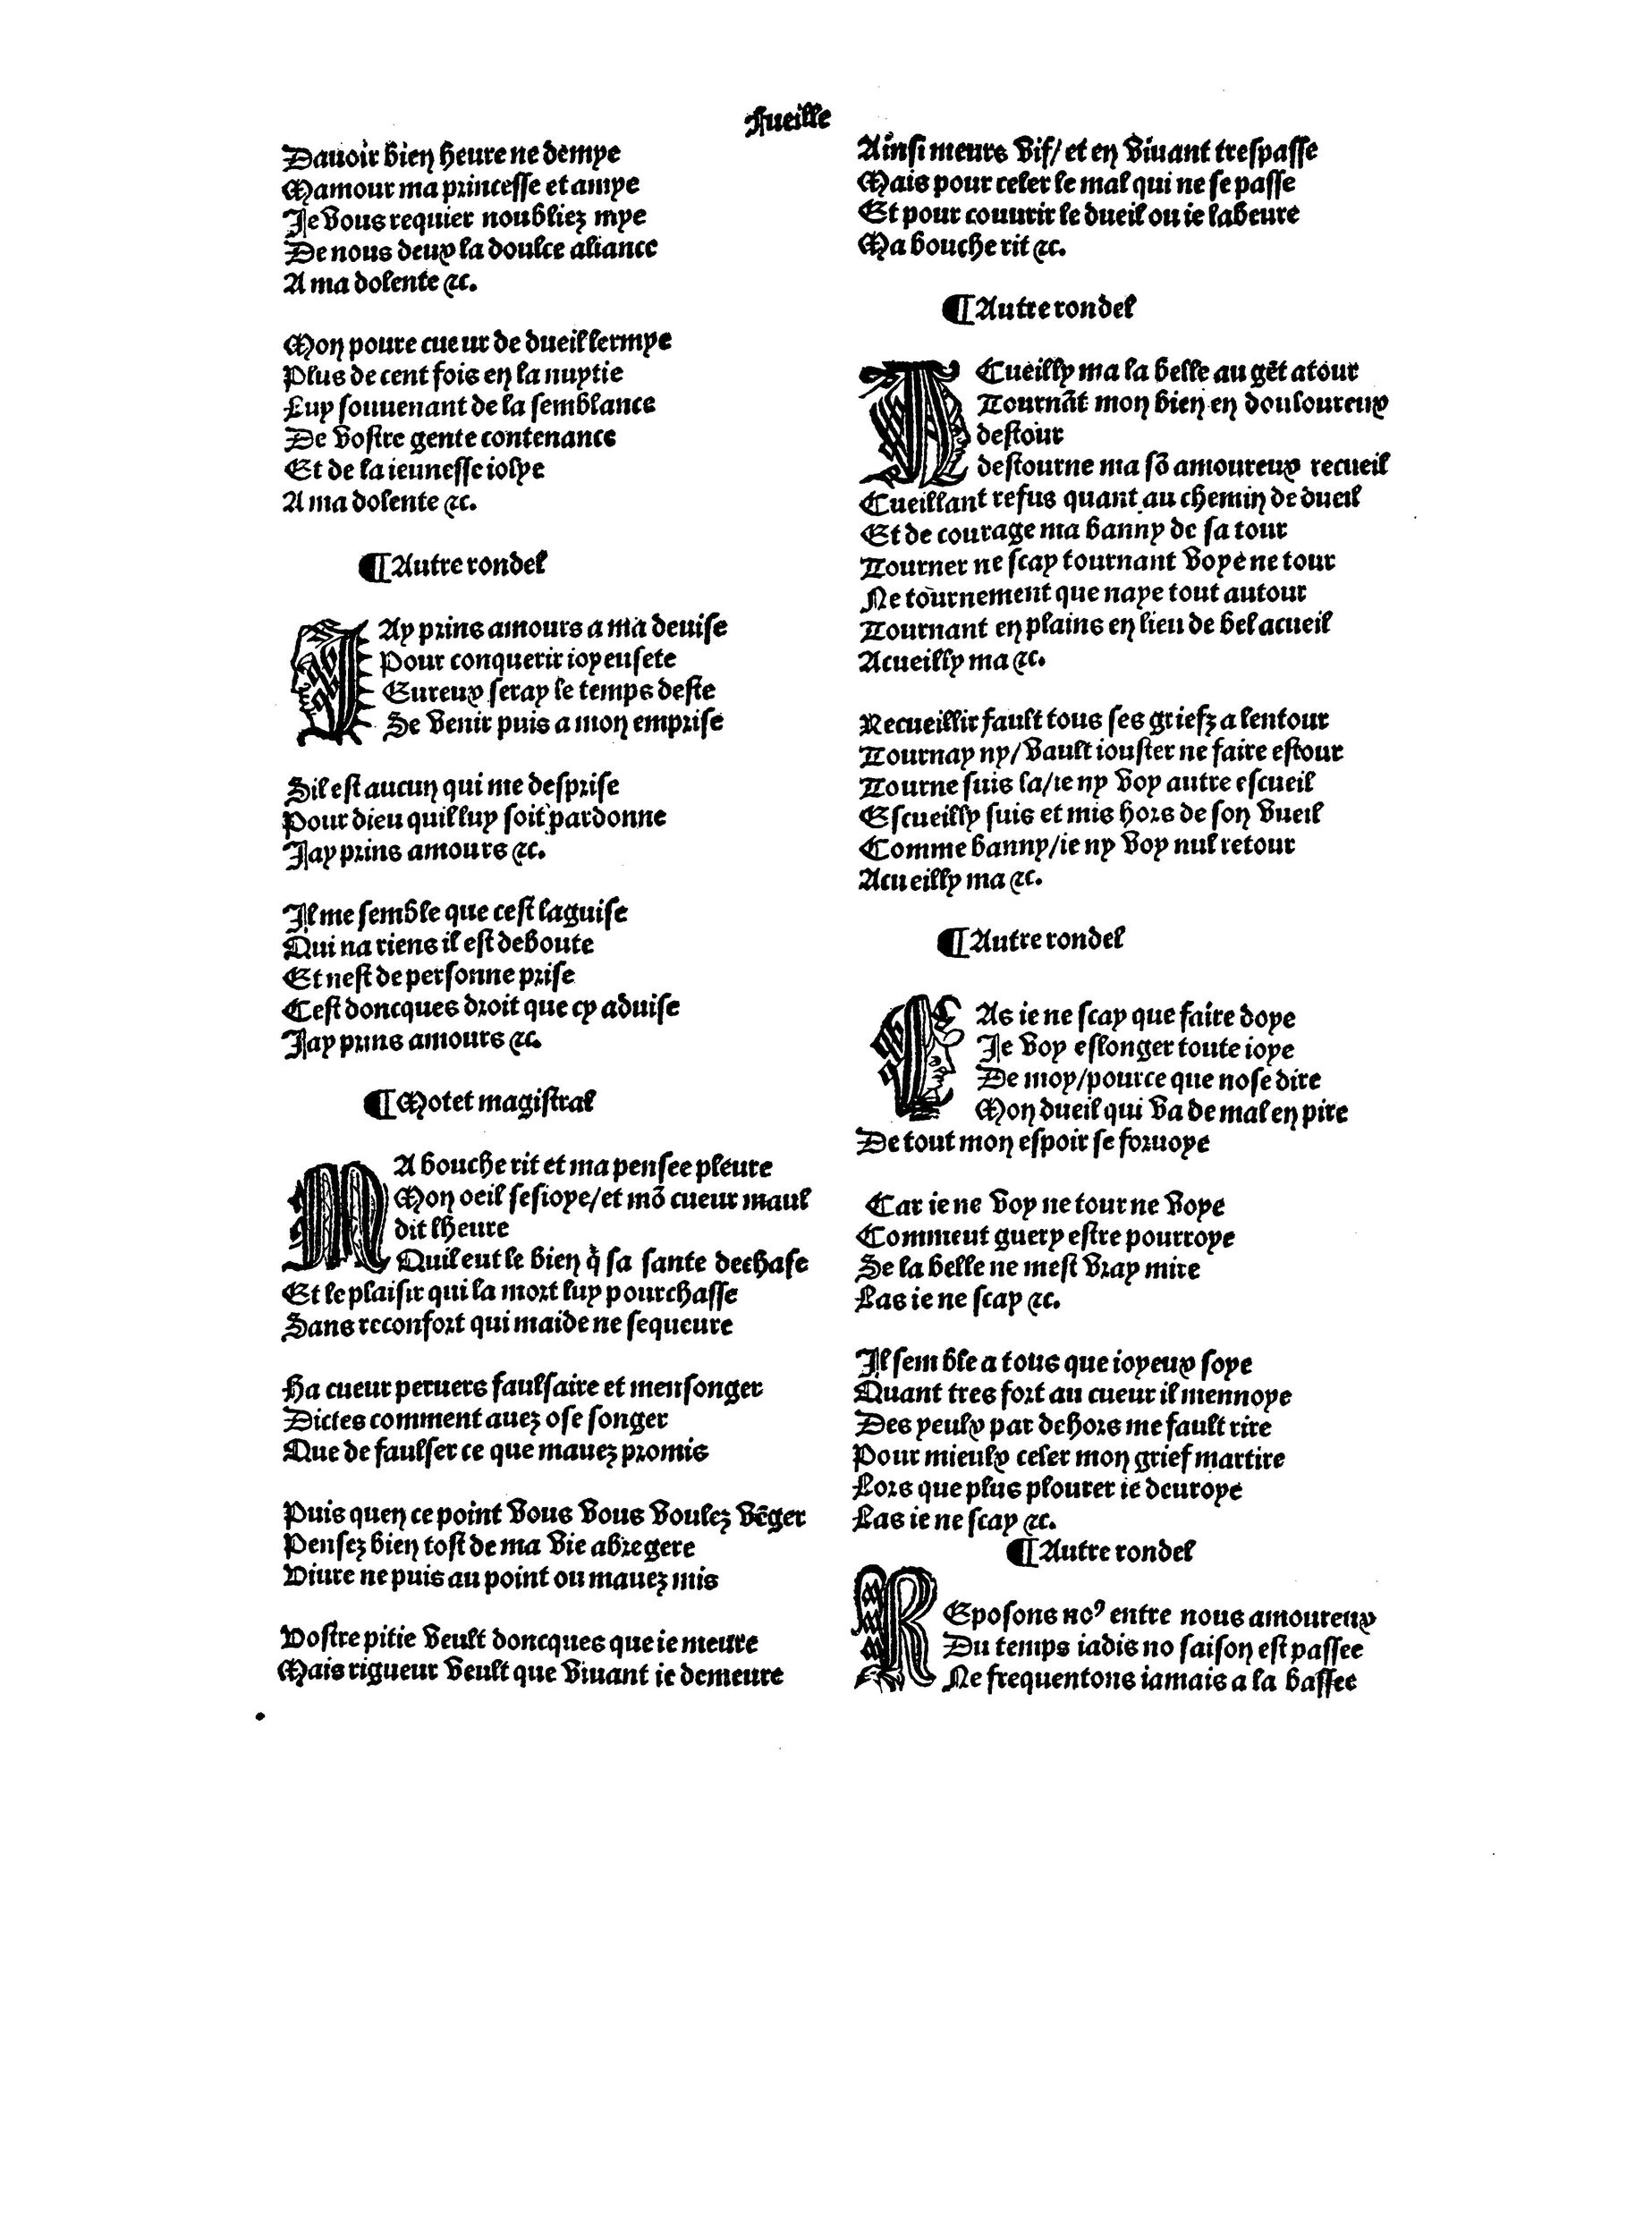 Fueille
Dauoir bien heure ne demye
Mamour ma princesse et amye
Je vous requier noubliez mye
De nous deux la doulce aliance
A ma dolente &c.
Mon poure cueur de dueil lermye
Plus de cent fois en la nuytie
Luy souuenant de la semblance
De vostre gente contenance
Et de la ieunesse iolye
A ma dolente &c.
¶ Autre rondel
JAy prins amours a ma deuise
Pour conquerir ioyeusete
Eureux seray le temps deste
Se venir puis a mon emprise
Sil est aucun qui me desprise
Pour dieu quil luy soit pardonne
Jay prins amours &c.
Il me semble que cest la guise
Qui na riens il est deboute
Et nest de personne prise
Cest doncques droit que cy aduise
Jay prins amours &c.
¶ Motet magistral
MA bouche rit et ma pensee pleure
Mon oeil sesioye/et mõ cueur maul
dit lheure
Quil eut le bien q̃ sa sante dechase
Et le plaisir qui la mort luy pourchasse
Sans reconfort qui maide ne sequeure
Ha cueur peruers faulsaire et mensonger
Dictes comment auez ose songer
Que de faulser ce que mauez promis
Puis quen ce point vous vous voulez vẽger
Pensez bien tost de ma vie abregere
Viure ne puis au point ou mauez mis
Vostre pitie veult doncques que ie meure
Mais rigueur veult que viuant ie demeure
Ainsi meurs vif/et en viuant trespasse
Mais pour celer le mal qui ne se passe
Et pour couurir le dueil ou ie labeure
Ma bouche rit &c.
¶ Autre rondel
ACueilly ma la belle au gẽt atour
Tournãt mon bien en douloureux
destour
destourne ma sõ amoureux recueil
Cueillant refus quant au chemin de dueil
Et de courage ma banny de sa tour
Tourner ne scay tournant voye ne tour
Ne tournement que naye tout autour
Tournant en plains en lieu de bel acueil
Acueilly ma &c.
Recueillir fault tous ses griefz a lentour
Tournay ny/vault iouster ne faire estour
Tourne suis la/ie ny voy autre escueil
Escueilly suis et mis hors de son vueil
Comme banny/ie ny voy nul retour
Acueilly ma &c.
¶ Autre rondel
LAs ie ne scay que faire doye
Je voy eslonger toute ioye
De moy/pource que nose dire
Mon dueil qui va de mal en pire
De tout mon espoir se foruoye
Car ie ne voy ne tour ne voye
Comment guery estre pourroye
Se la belle ne mest vray mire
Las ie ne scay &c.
Il semble a tous que ioyeux soye
Quant tres fort au cueur il mennoye
Des yeulx par dehors me fault rire
Pour mieulx celer mon grief martire
Lors que plus plourer ie deuroye
Las ie ne scay &c.
¶ Autre rondel
REposons noꝰ entre nous amoureux
Du temps iadis no saison est passee
Ne frequentons iamais a la bassee